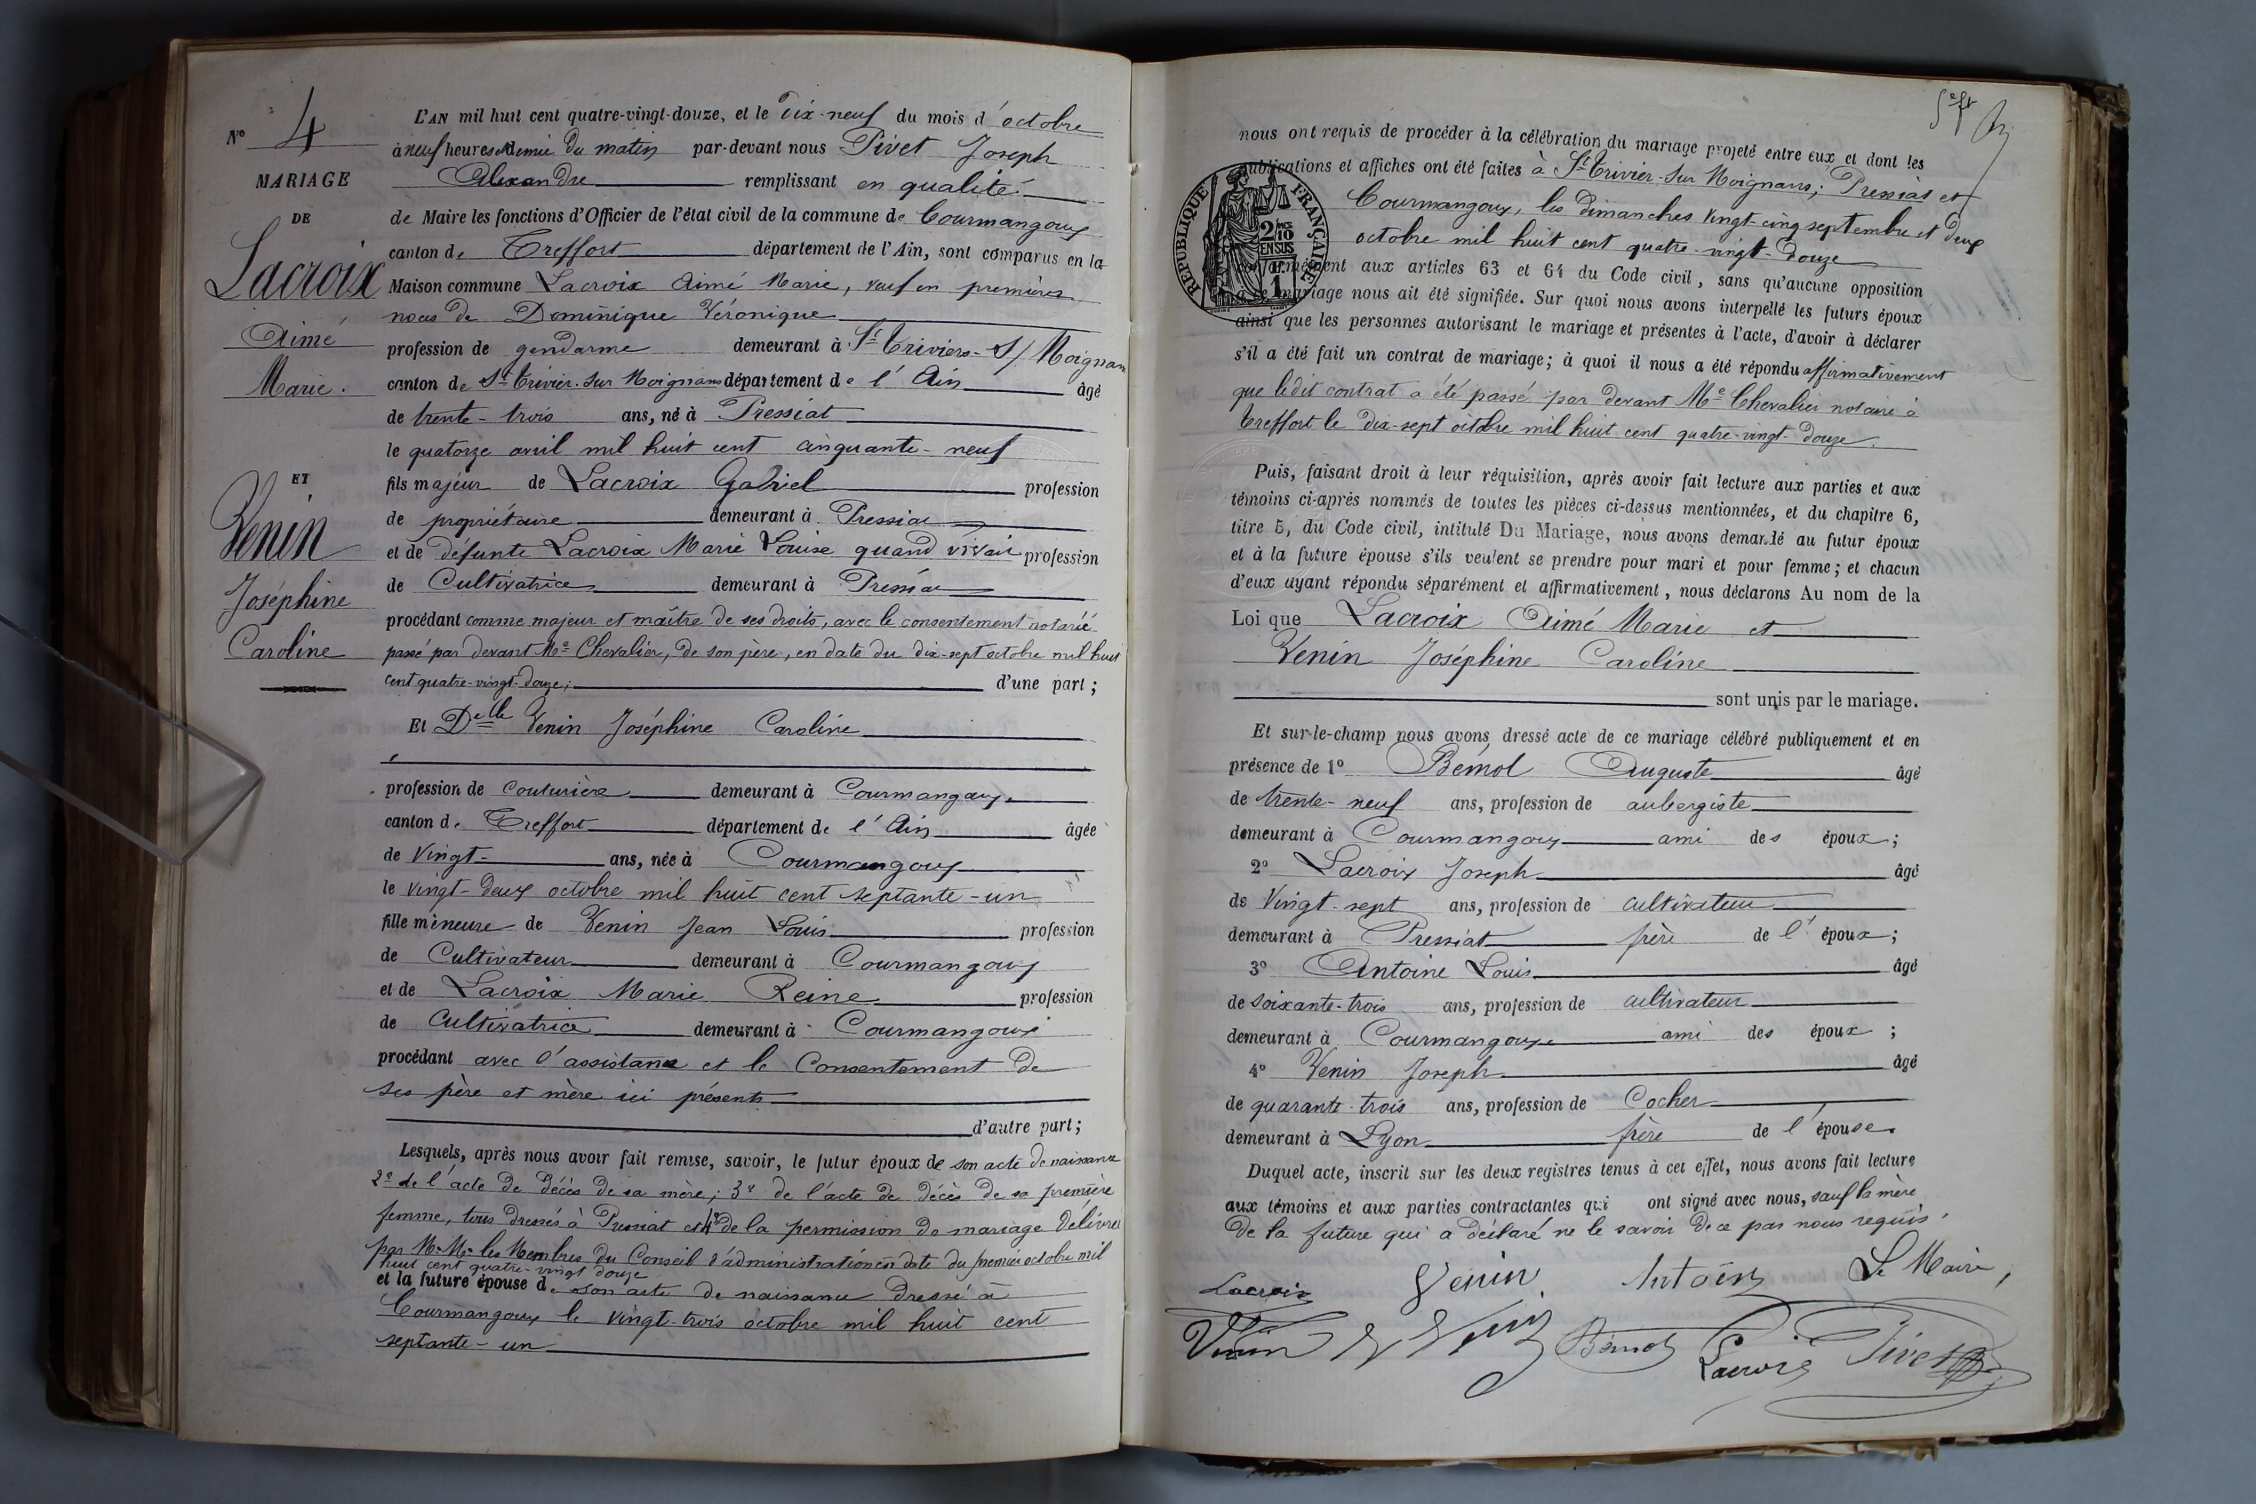 N° 4
MARIAGE
DE
Lacroix
Aimé
Marie.
ET
Venin
Joséphine
Caroline
L'AN mil huit cent quatre-vingt-douze, et le dix-neuf du mois d'octobre
à neuf heures et demie du matin par-devant nous Pivet Joseph
Alexandre remplissant en qualité
de Maire les fonctions d'Officier de l'état civil de la commune de Courmangoux
canton de Treffort département de l'Ain, sont comparus en la
Maison commune Lacroix Aimé Marie, veuf en premières
noces de Dominique Véronique
profession de gendarme demeurant à St Triviers-S/Moignans
canton de St Trivier-sur Moignans département de l'Ain âgé
de trente-trois ans, né à Pressiat
le quatorze avril mil huit cent cinquante-neuf
fils majeur de Lacroix Gabriel profession
de propriétaire demeurant à Pressiat
et de défunte Lacroix Marie Louise quand vivait profession
de Cultivatrice demeurant à Pressiat
procédant comme majeur et maître de ses droits, avec le consentement notarié
passé par devant Me Chevalier, de son père, en date du dix-sept octobre mil huit
cent quatre-vingt-douze; d'une part;
Et Delle Venin Joséphine Caroline
profession de couturière demeurant à Courmangoux
canton de Treffort département de l'Ain âgée
de vingt ans, née à Courmangoux
le vingt-deux octobre mil huit cent septante-un
fille mineure de Venin Jean Louis profession
de Cultivateur demeurant à Courmangoux
et de Lacroix Marie Reine profession
de Cultivatrice demeurant à Courmangoux
procédant avec l'assistance et le Consentement de
ses père et mère ici présents
d'autre part;
Lesquels, après nous avoir fait remise, savoir, le futur époux de son acte de naissance
2° de l'acte de décès de sa mère; 3° de l'acte de décès de sa première
femme, tous dressés à Pressiat et 4° de la permission de mariage délivrée
par M.M. les Membres du Conseil d'administration en date du premier octobre mil
huit cent quatre-vingt douze
et la future épouse de son acte de naissance dressé à
Courmangoux le vingt-trois octobre mil huit cent
septante-un
nous ont requis de procéder à la célébration du mariage projeté entre eux et dont les
publications et affiches ont été faites à St Trivier-sur Moignans; Pressiat et
Courmangoux, les dimanches vingt-cinq septembre et deux
octobre mil huit cent quatre-vingt-douze
conformément aux articles 63 et 64 du Code civil, sans qu'aucune opposition
à ce mariage nous ait été signifiée. Sur quoi nous avons interpellé les futurs époux
ainsi que les personnes autorisant le mariage et présentes à l'acte, d'avoir à déclarer
s'il a été fait un contrat de mariage; à quoi il nous a été répondu affirmativement
que ledit contrat a été passé par devant Me Chevalier notaire à
Treffort le dix-sept octobre mil huit cent quatre-vingt-douze.
RÉPUBLIQUE FRANÇAISE
2/10 EN SUS
1F
Puis, faisant droit à leur réquisition, après avoir fait lecture aux parties et aux
témoins ci-après nommés de toutes les pièces ci-dessus mentionnées, et du chapitre 6,
titre 5, du Code civil, intitulé Du Mariage, nous avons demandé au futur époux
et à la future épouse s'ils veulent se prendre pour mari et pour femme; et chacun
d'eux ayant répondu séparément et affirmativement, nous déclarons Au nom de la
Loi que Lacroix Aimé Marie et
Venin Joséphine Caroline
sont unis par le mariage.
Et sur-le-champ nous avons dressé acte de ce mariage célébré publiquement et en
présence de 1° Bémol Auguste âgé
de trente-neuf ans, profession de aubergiste
demeurant à Courmangoux ami des époux;
2° Lacroix Joseph âgé
de Vingt-sept ans, profession de cultivateur
demeurant à Pressiat frère de l'époux;
3° Antoine Louis âgé
de soixante-trois ans, profession de cultivateur
demeurant à Courmangoux ami des époux;
4° Venin Joseph âgé
de quarante-trois ans, profession de Cocher
demeurant à Lyon frère de l'épouse.
Duquel acte, inscrit sur les deux registres tenus à cet effet, nous avons fait lecture
aux témoins et aux parties contractantes qui ont signé avec nous, sauf la mère
de la future qui a déclaré ne le savoir de ce par nous requis.
Lacroix Venin Antoine Le Maire,
Venin J Venin Bémol Lacroix Pivet